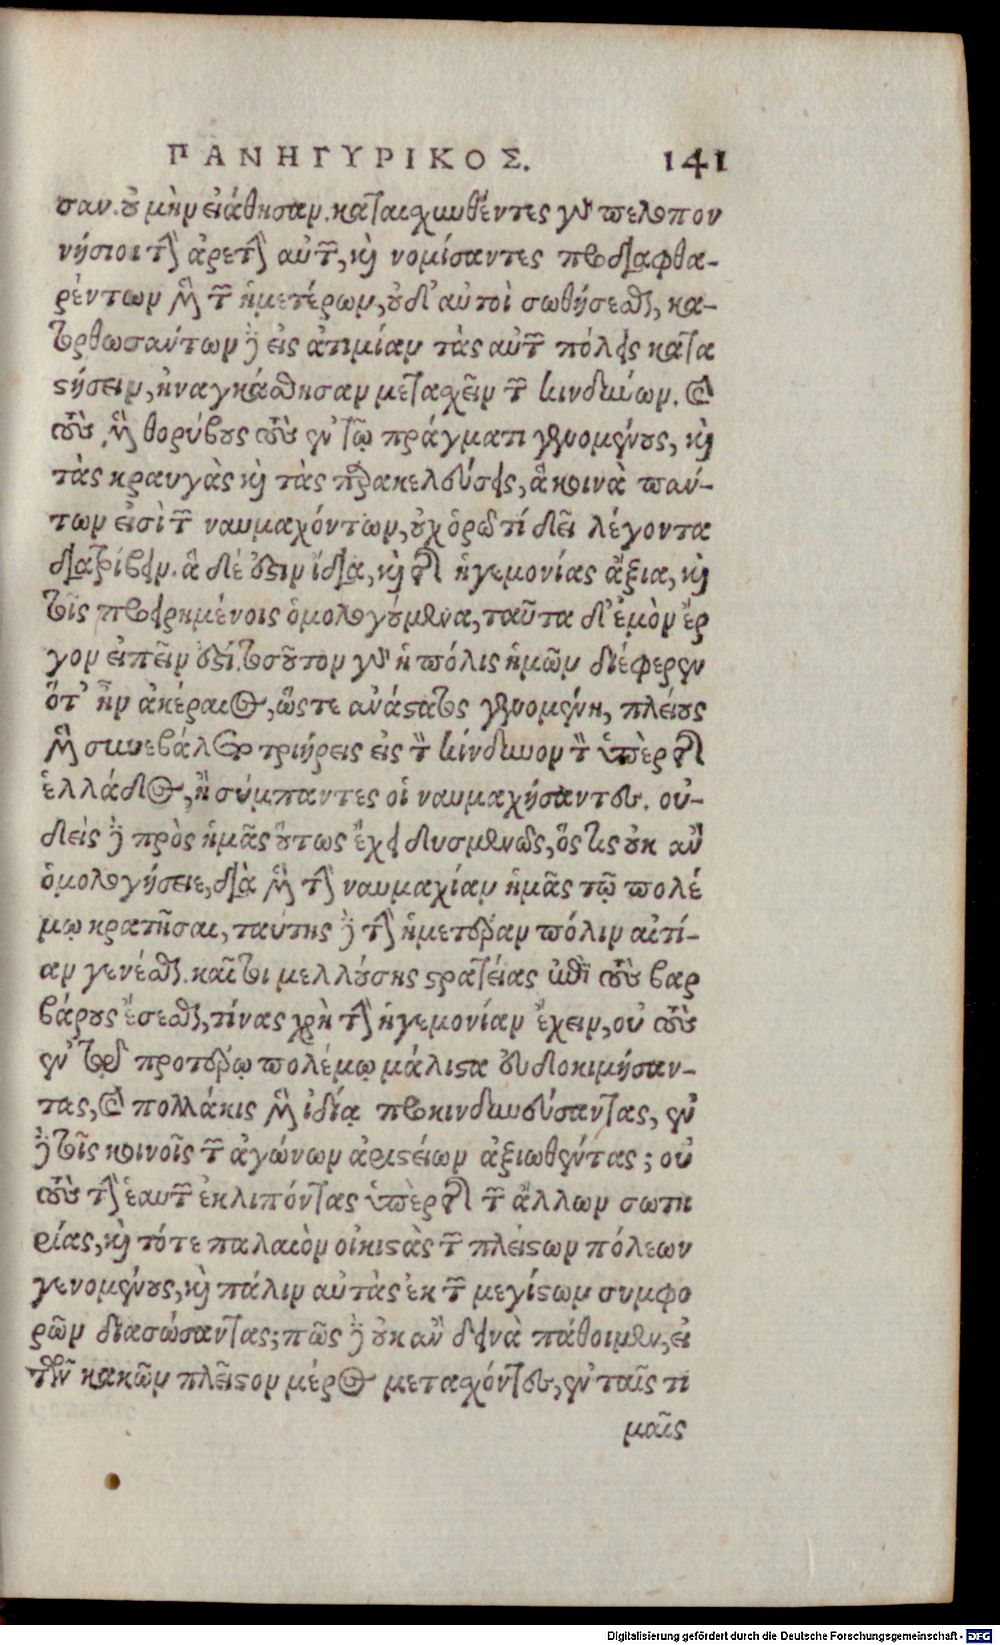 ΠΑΝΗΓΥΡΙΚΟΣ. 141
σαν. οὐ μὴν εἰάθησαν. καταισχυνθέντες γὰρ πελοπον
νήσιοι τὴν ἀρετὴν αὐτῶν, καὶ νομίσαντες προδιαφθα-
ρέντων μὲν τῶν ἡμετέρων, οὐδ' αὐτοὶ σωθήσεσθαι, κα-
τορθωσάντων δὲ εἰς ἀτιμίαν τὰς αὐτῶν πόλεις κατα
στήσειν, ἠναγκάσθησαν μετασχεῖν τῶν κινδύνων. καὶ
τοὺς μὲν θορύβους τοὺς ἐν τῷ πράγματι γενομένους, καὶ
τὰς κραυγὰς καὶ τὰς παρακελεύσεις, ἃ κοινὰ πάν-
των εἰσὶ τῶν ναυμαχόντων, οὐχ ὁρῶ τί δεῖ λέγοντα
διατρίβειν. ἃ δέ ἐστιν ἴδια, καὶ τῆς ἡγεμονίας ἄξια, καὶ
τοῖς προειρημένοις ὁμολογούμενα, ταῦτα δ' ἐμὸν ἔρ
γον εἰπεῖν ἐστί. τοσοῦτον γὰρ ἡ πόλις ἡμῶν διέφερεν
ὅτ' ἦν ἀκέραιος, ὥστε ἀνάστατος γενομένη, πλείους
μὲν συνεβάλετο τριήρεις εἰς τὸν κίνδυνον τὸν ὑπὲρ τῆς
ἑλλάδος, ἢ σύμπαντες οἱ ναυμαχήσαντες. οὐ-
δεὶς δὲ πρὸς ἡμᾶς οὕτως ἔχει δυσμενῶς, ὅστις οὐκ ἂν
ὁμολογήσειε, διὰ μὲν τὴν ναυμαχίαν ἡμᾶς τῷ πολέ
μῳ κρατῆσαι, ταύτης δὲ τὴν ἡμετέραν πόλιν αἰτί-
αν γενέσθαι. καίτοι μελλούσης στρατείας ἐπὶ τοὺς βαρ
βάρους ἔσεσθαι, τίνας χρὴ τὴν ἡγεμονίαν ἔχειν, οὐ τοὺς
ἐν τῷ προτέρῳ πολέμῳ μάλιστα εὐδοκιμήσαν-
τας, καὶ πολλάκις μὲν ἰδίᾳ προκινδυνεύσαντας, ἐν
δὲ τοῖς κοινοῖς τῶν ἀγώνων ἀριστείων ἀξιωθέντας; οὐ
τοὺς τὴν ἑαυτῶν ἐκλιπόντας ὑπὲρ τῆς τῶν ἄλλων σωτη
ρίας, καὶ τότε παλαιὸν οἰκιστὰς τῶν πλείστων πόλεων
γενομένους, καὶ πάλιν αὐτὰς ἐκ τῶν μεγίστων συμφο
ρῶν διασώσαντας; πῶς δὲ οὐκ ἂν δεινὰ πάθοιμεν, εἰ
τῶν κακῶν πλεῖστον μέρος μετασχόντες, ἐν ταῖς τι
μαῖς
Digitalisierung gefördert durch die Deutsche Forschungsgemeinschaft - DFG